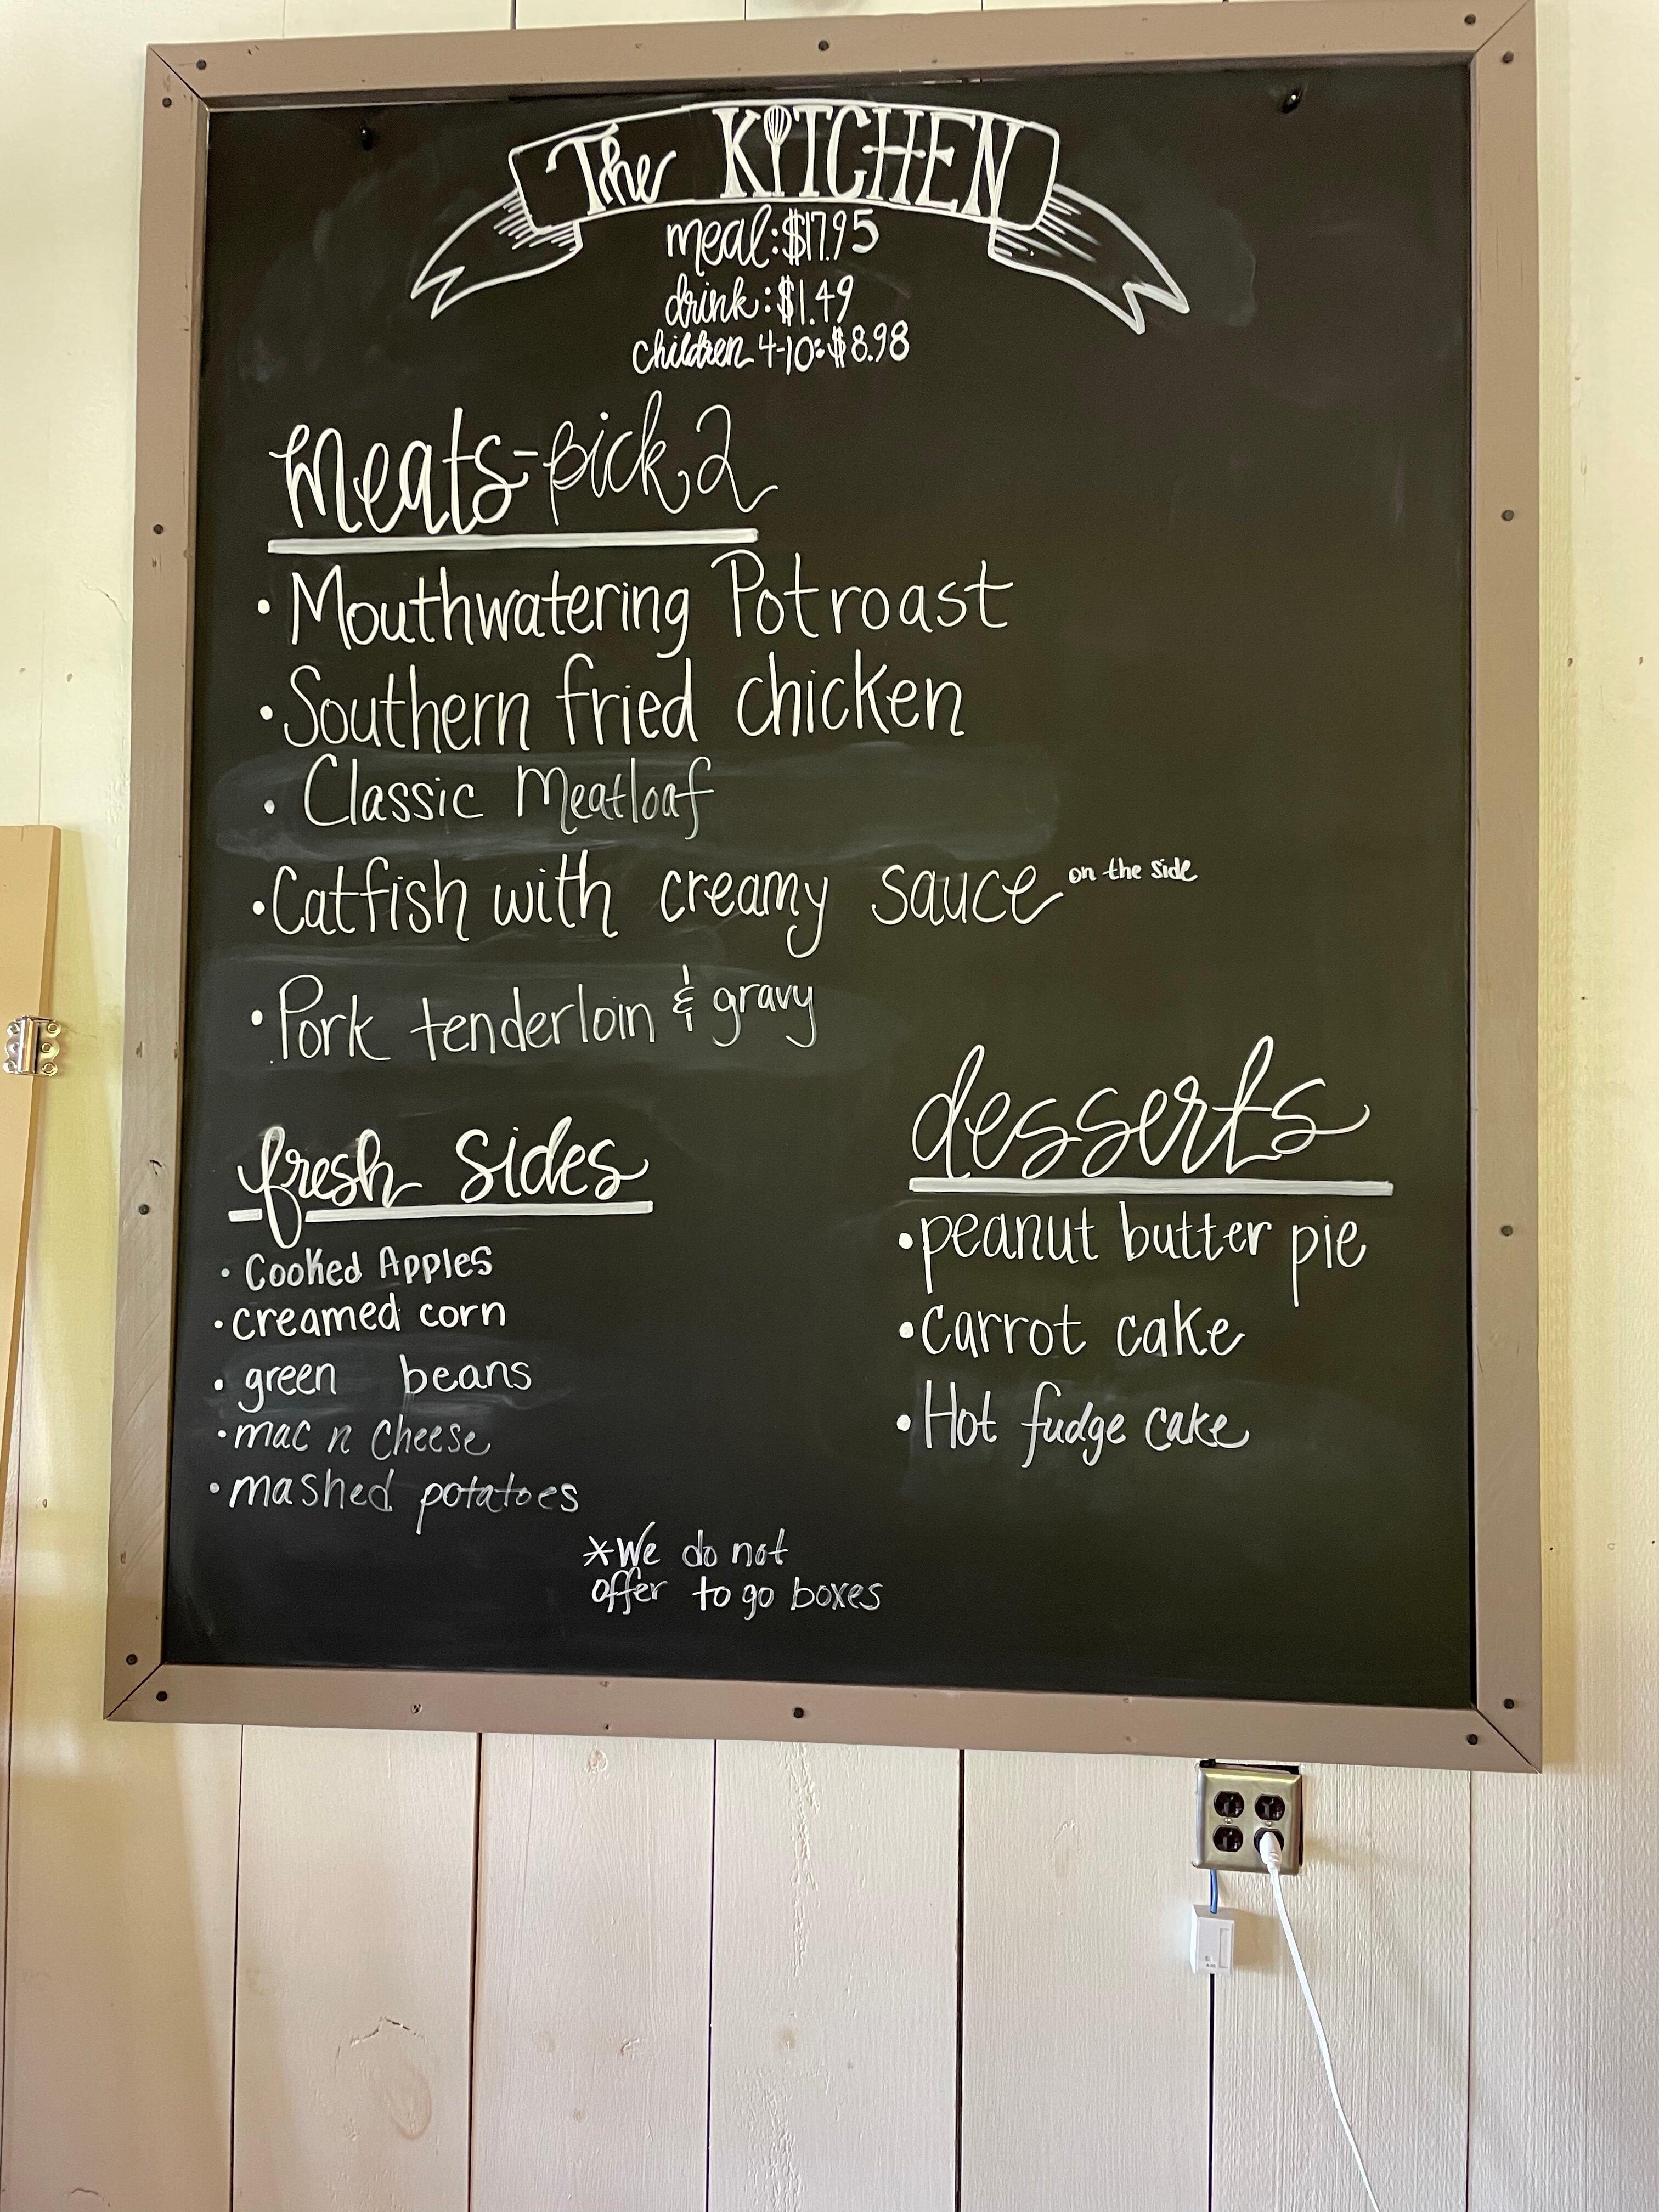 The KITCHEN
meal: $17.95
drink: $1.49
children 4-10: $8.98
Meats-pick 2
• Mouthwatering Potroast
• Southern fried chicken
• Classic Meatloaf
• Catfish with creamy sauce on the side
• Pork tenderloin & gravy
fresh sides
• Cooked Apples
• creamed corn
• green beans
• mac n cheese
• mashed potatoes
desserts
• peanut butter pie
• carrot cake
• Hot fudge cake
*We do not
offer to go boxes